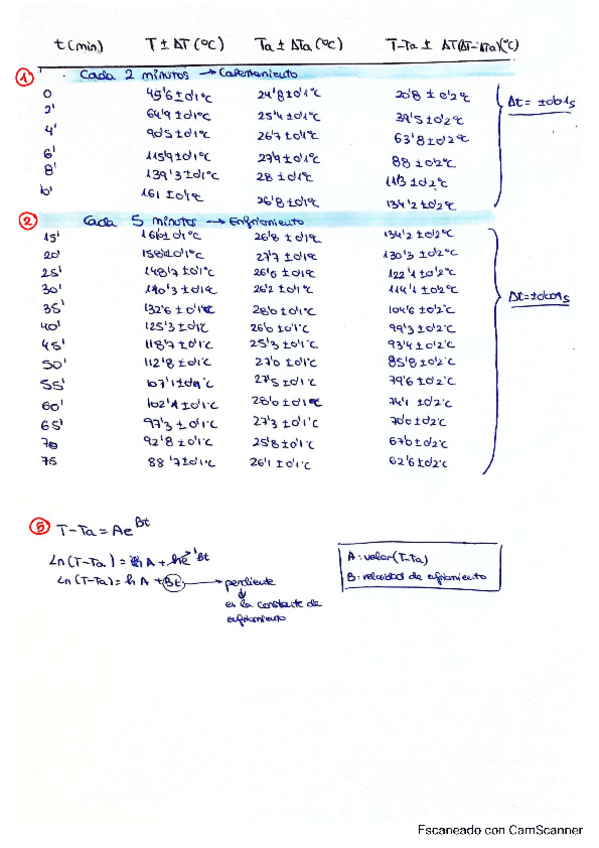 t (min) T ± ΔT (ºC) Ta ± ΔTa (ºC) T-Ta ± ΔT(ΔT-ΔTa)(ºC)
1 · Cada 2 minutos → Calentamiento
0 45'6 ± 0'1ºC 24'8 ± 0'1ºC 20'8 ± 0'2ºC
2' 64'9 ± 0'1ºC 25'4 ± 0'1ºC 39'5 ± 0'2ºC
4' 90'5 ± 0'1ºC 26'7 ± 0'1ºC 63'8 ± 0'2ºC
6' 115'9 ± 0'1ºC 27'9 ± 0'1ºC 88 ± 0'2ºC
8' 139'3 ± 0'1ºC 28 ± 0'1ºC 111'3 ± 0'2ºC
10' 161 ± 0'1ºC 26'8 ± 0'1ºC 134'2 ± 0'2ºC
Δt = ±0'01s
2 Cada 5 minutos → Enfriamiento
15' 161 ± 0'1ºC 26'8 ± 0'1ºC 134'2 ± 0'2ºC
20' 158 ± 0'1ºC 27'7 ± 0'1ºC 130'3 ± 0'2ºC
25' 148'7 ± 0'1ºC 26'6 ± 0'1ºC 122'1 ± 0'2ºC
30' 140'3 ± 0'1ºC 26'2 ± 0'1ºC 114'1 ± 0'2ºC
35' 132'6 ± 0'1ºC 28'0 ± 0'1ºC 104'6 ± 0'2ºC
40' 125'3 ± 0'1ºC 26'0 ± 0'1ºC 99'3 ± 0'2ºC
45' 118'7 ± 0'1ºC 25'3 ± 0'1ºC 93'4 ± 0'2ºC
50' 112'8 ± 0'1ºC 27'0 ± 0'1ºC 85'8 ± 0'2ºC
55' 107'1 ± 0'1ºC 27'5 ± 0'1ºC 79'6 ± 0'2ºC
60' 102'1 ± 0'1ºC 28'0 ± 0'1ºC 74'1 ± 0'2ºC
65' 97'3 ± 0'1ºC 27'3 ± 0'1ºC 70'0 ± 0'2ºC
70 92'8 ± 0'1ºC 25'8 ± 0'1ºC 67'0 ± 0'2ºC
75 88'7 ± 0'1ºC 26'1 ± 0'1ºC 62'6 ± 0'2ºC
5 T-Ta = Ae^Bt
Ln(T-Ta) = ln A + lne Bt
Ln(T-Ta) = ln A + Bt → pendiente
es la constante de
enfriamiento
A: valor (T-Ta)
B: velocidad de enfriamiento
Escaneado con CamScanner